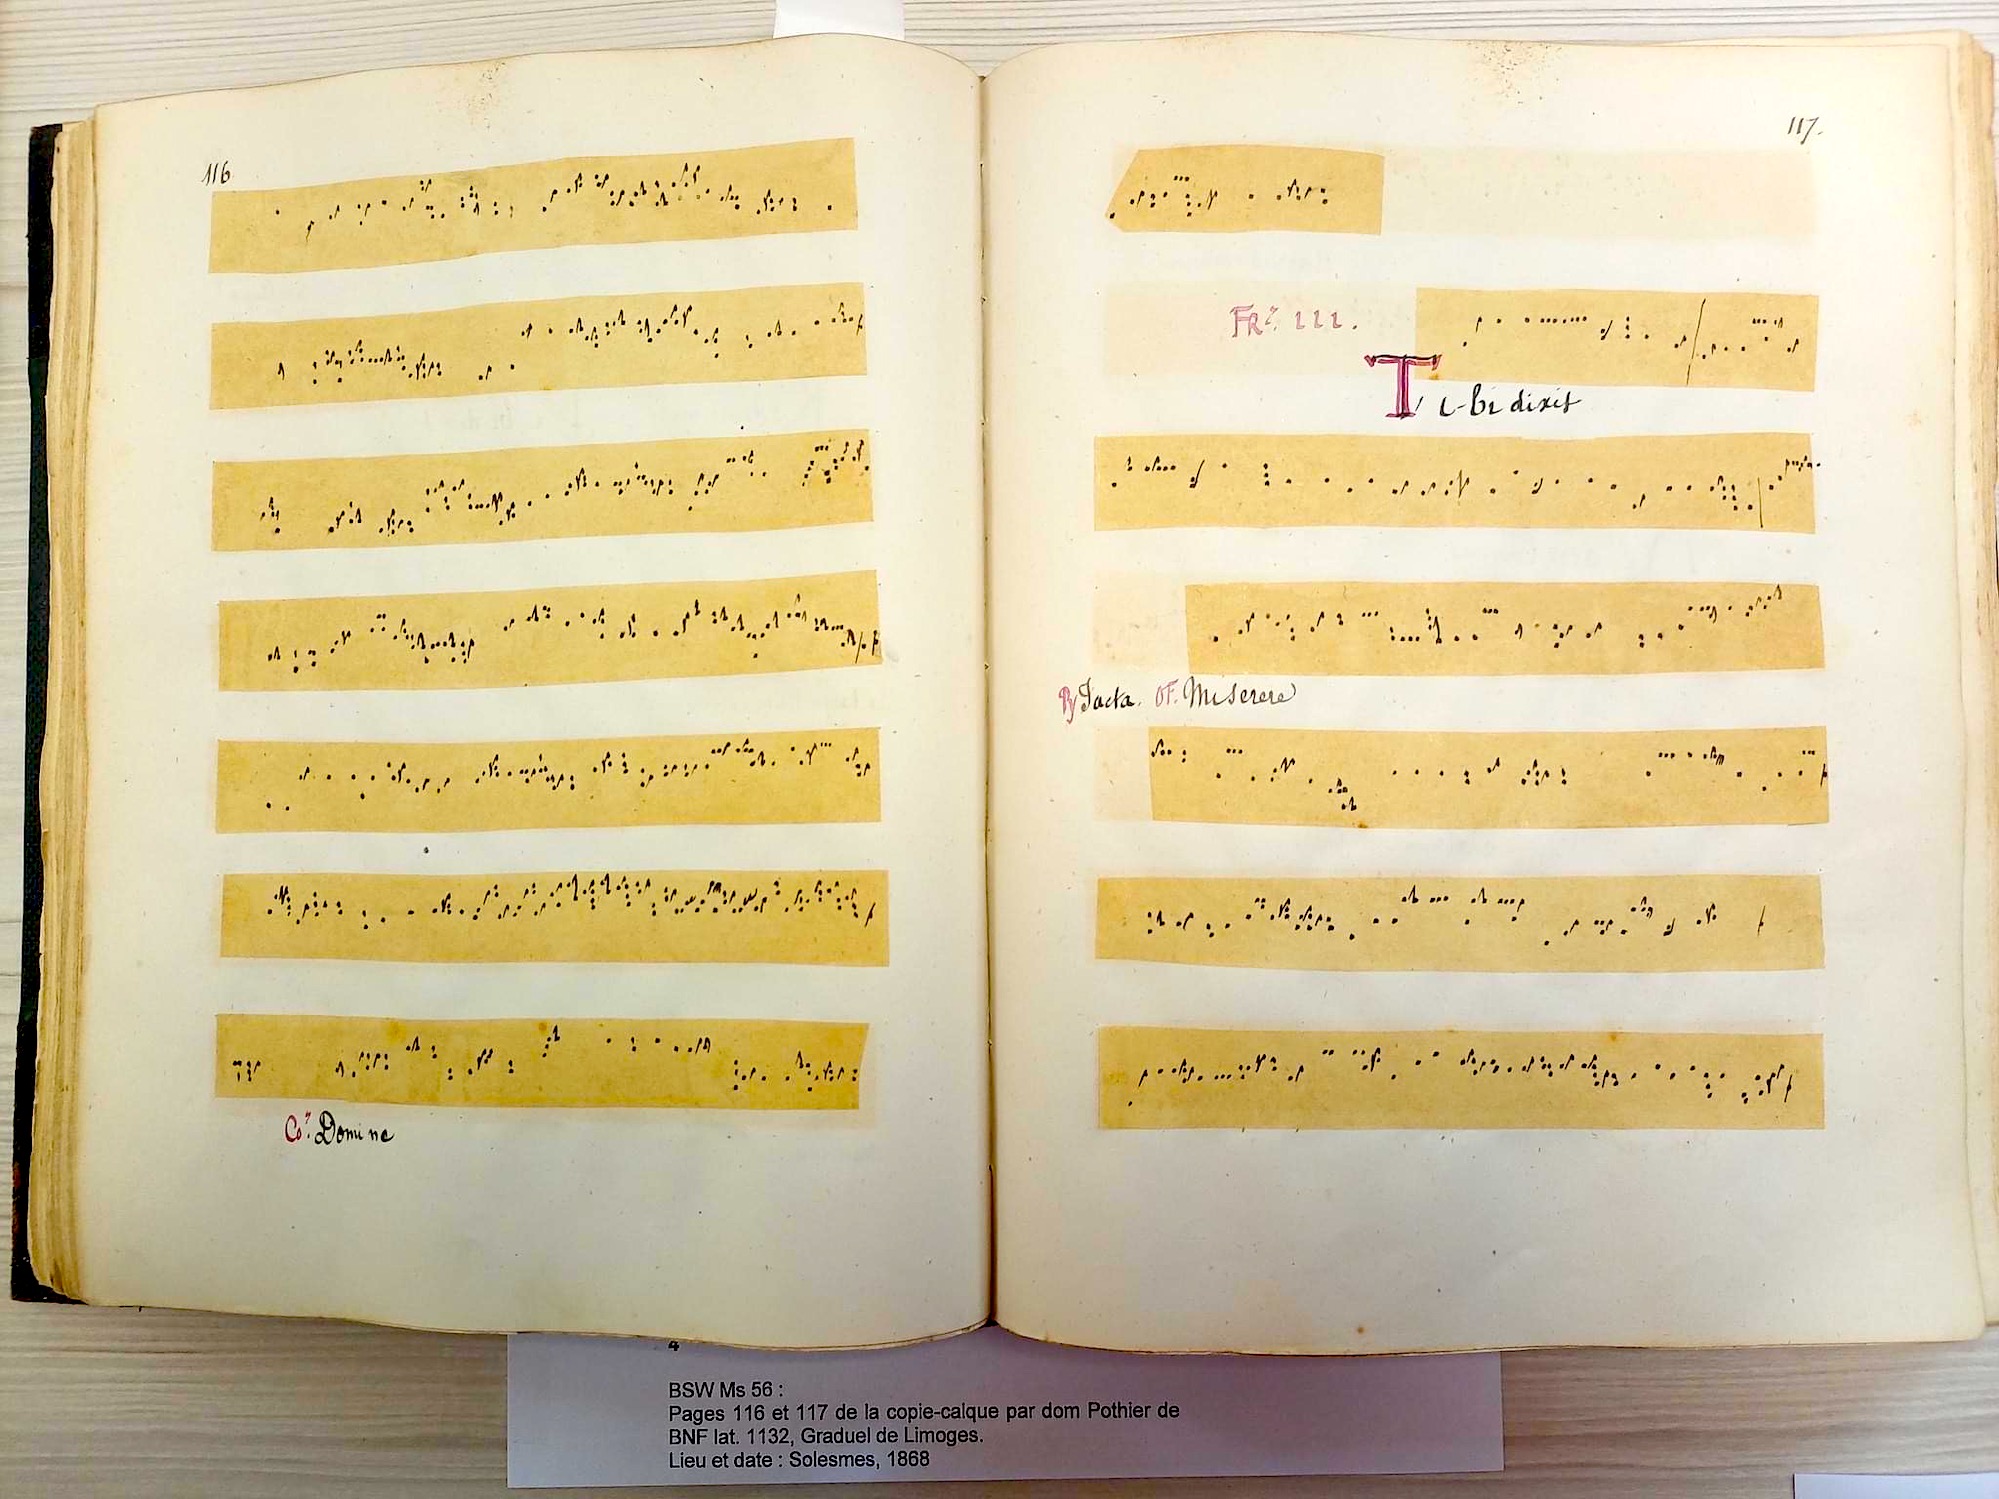 116
Co. Domine
117.
FR. III.
Ti-bi dixit
Jacta. OF. Miserere
4
BSW Ms 56 :
Pages 116 et 117 de la copie-calque par dom Pothier de
BNF lat. 1132, Graduel de Limoges.
Lieu et date : Solesmes, 1868